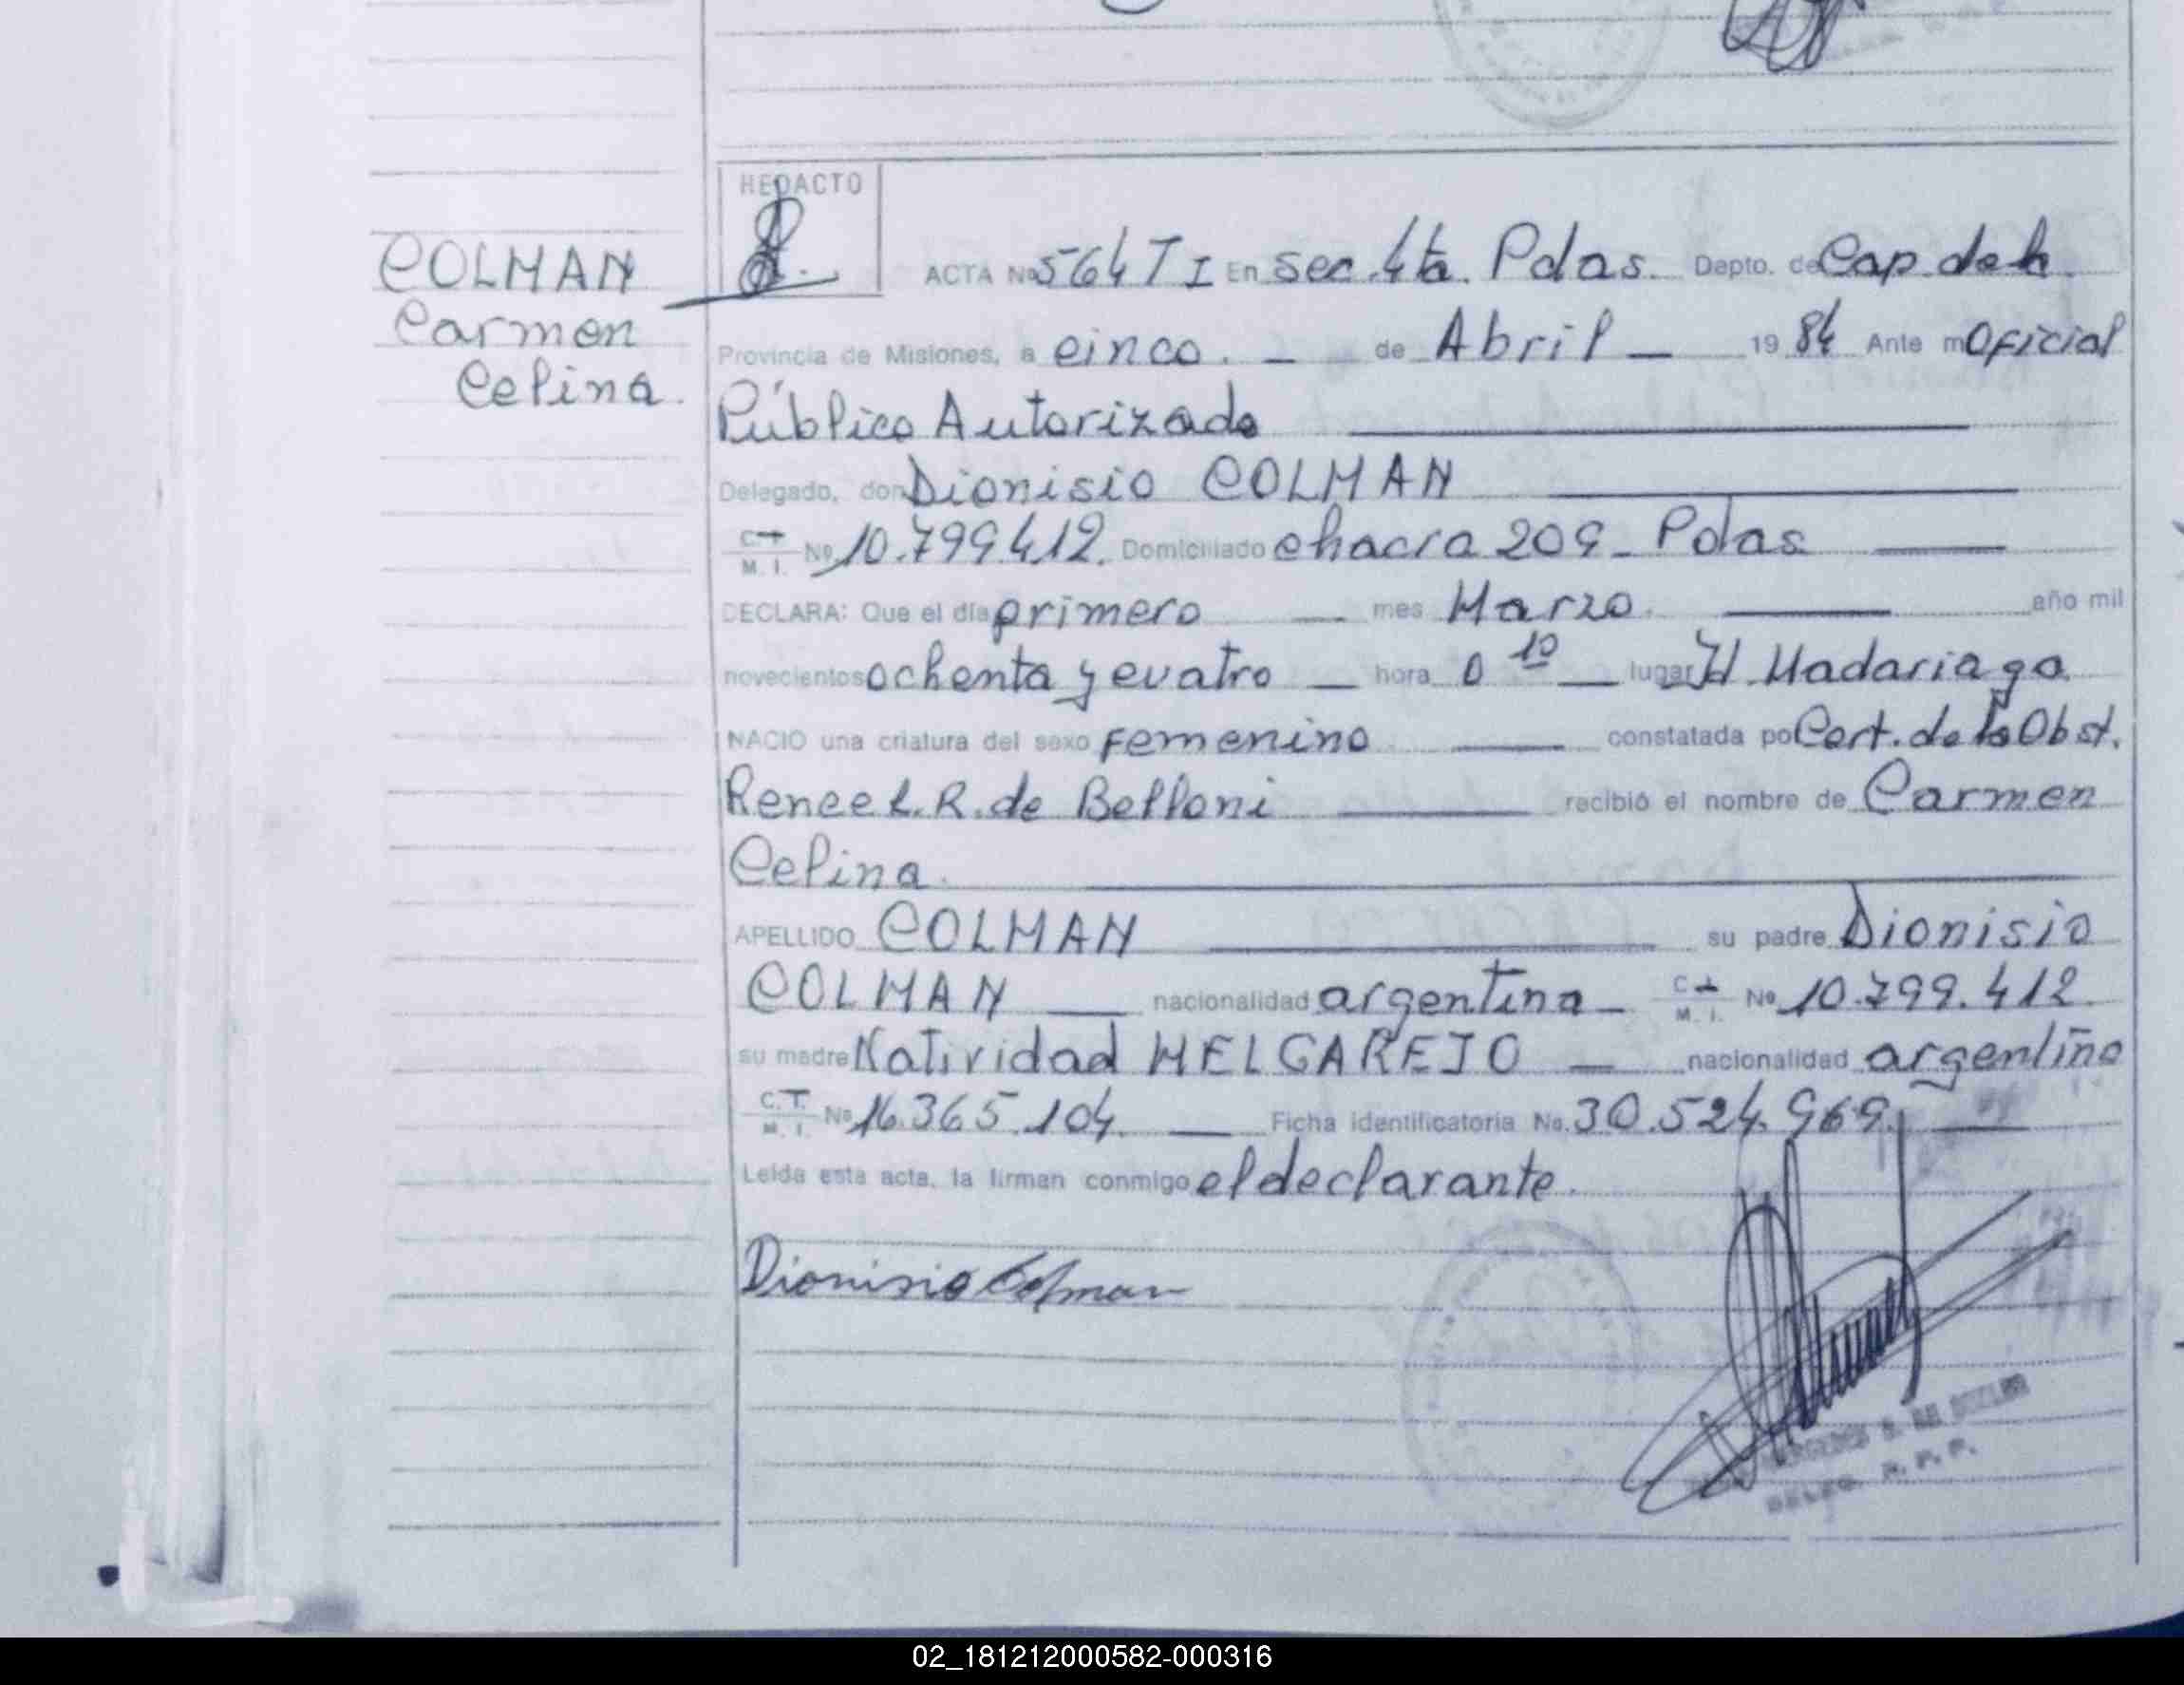 REDACTO
COLMAN
Carmen
Celina.
ACTA No 564 T I En Sec. 4ta. Pdas. Depto. de Cap. de la
Provincia de Misiones, a cinco. — de Abril — 1984 Ante mi Oficial
Público Autorizado
Delegado, don Dionisio COLMAN
C.T. M. I. Nº 10.799.412. Domiciliado chacra 209 - Pdas
DECLARA: Que el día primero — mes Marzo. — año mil
novecientos ochenta y cuatro — hora 0 10 — lugar H. Madariaga.
NACIO una criatura del sexo femenino — constatada por Cert. de la Obst.
Renee L. R. de Belloni — recibió el nombre de Carmen
Celina.
APELLIDO COLMAN — su padre Dionisio
COLMAN — nacionalidad argentina — C.I. M. I. Nº 10.799.412.
su madre Natividad MELGAREJO — nacionalidad argentina
C.T. M. I. Nº 16.365.104. — Ficha identificatoria No. 30.524.969. —
Leída esta acta, la firman conmigo el declarante.
Dionisio Colman
DELEG. R. P. P.
02_181212000582-000316